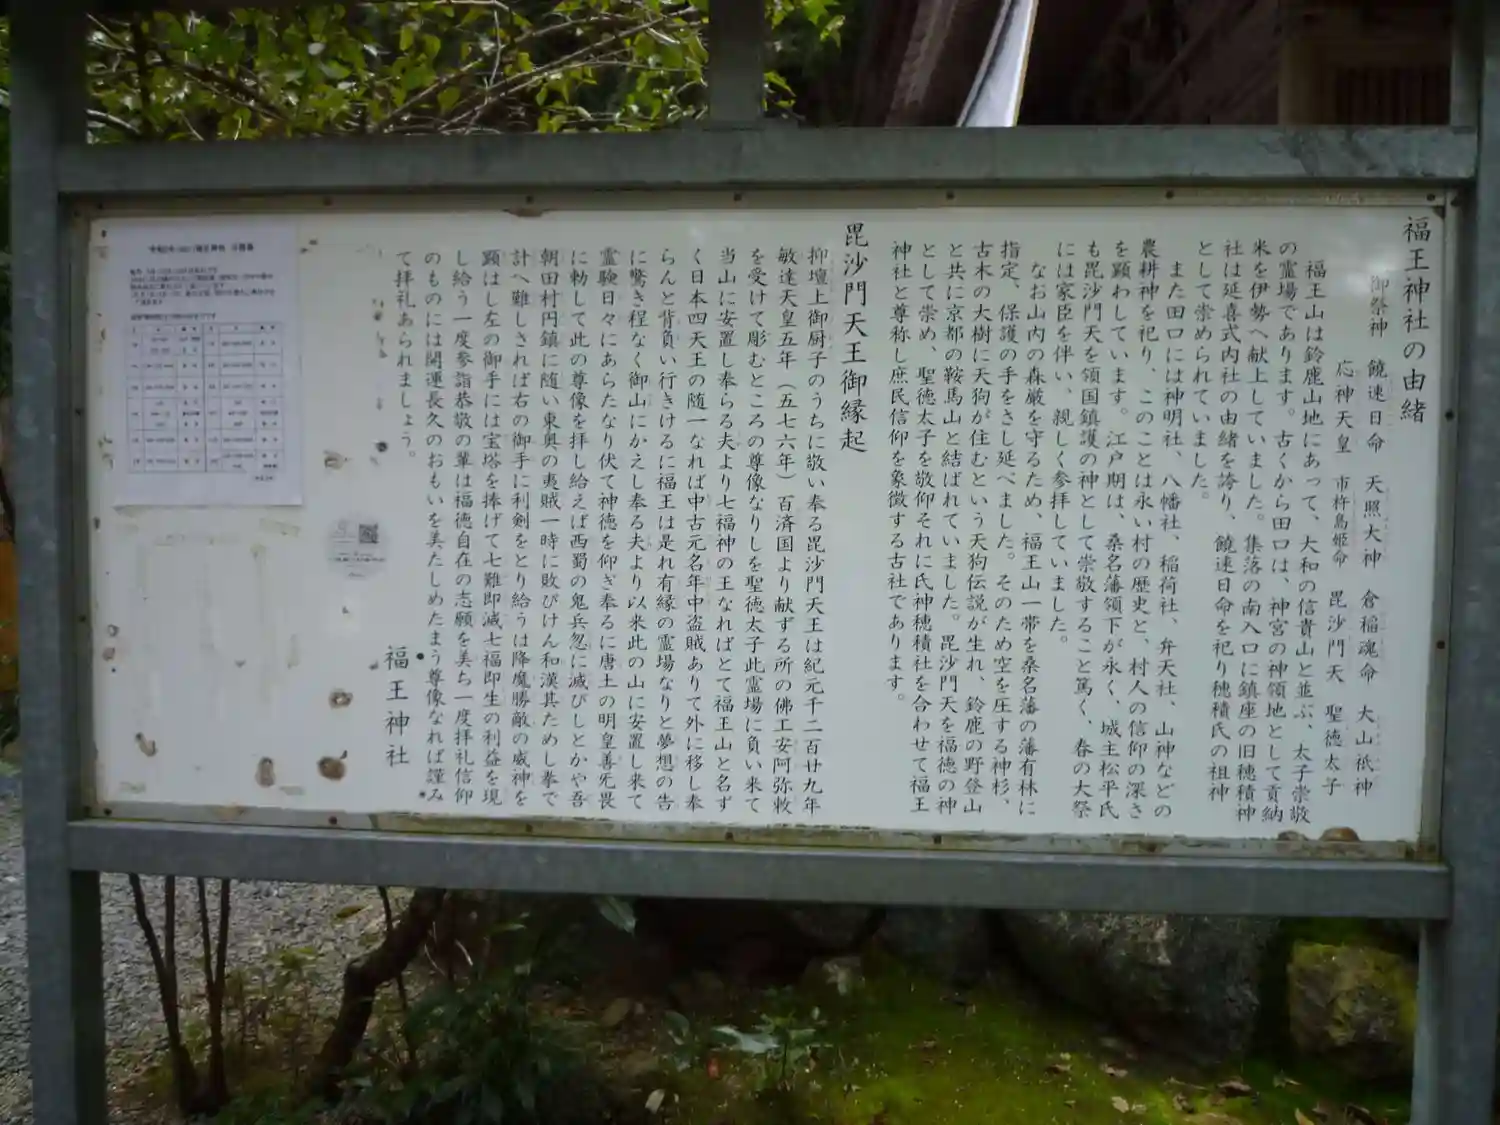 福王神社の由緒
御祭神 饒速日命 天照大神 倉稲魂命 大山祇神
応神天皇 市杵島姫命 毘沙門天 聖徳太子
福王山は鈴鹿山地にあって、大和の信貴山と並ぶ、太子崇敬
の霊場であります。古くから田口は、神宮の神領地として貢納
米を伊勢へ献上していました。集落の南入口に鎮座の旧穂積神
社は延喜式内社の由緒を誇り、饒速日命を祀り穂積氏の祖神
として崇められていました。
また田口には神明社、八幡社、稲荷社、弁天社、山神などの
農耕神を祀り、このことは永い村の歴史と、村人の信仰の深さ
を顕わしています。江戸期は、桑名藩領下が永く、城主松平氏
も毘沙門天を領国鎮護の神として崇敬すること篤く、春の大祭
には家臣を伴い、親しく参拝していました。
なお山内の森厳を守るため、福王山一帯を桑名藩の藩有林に
指定、保護の手をさし延べました。そのため空を圧する神杉、
古木の大樹に天狗が住むという天狗伝説が生れ、鈴鹿の野登山
と共に京都の鞍馬山と結ばれていました。毘沙門天を福徳の神
として崇め、聖徳太子を敬仰それに氏神穂積社を合わせて福王
神社と尊称し庶民信仰を象徴する古社であります。
毘沙門天王御縁起
抑壇上御厨子のうちに敬い奉る毘沙門天王は紀元千二百廿九年
敏達天皇五年（五七六年）百済国より献ずる所の佛工安阿弥敕
を受けて彫むところの尊像なりしを聖徳太子此霊場に負い来て
当山に安置し奉らる夫より七福神の王なればとて福王山と名ず
く日本四天王の随一なれば中古元名年中盗賊ありて外に移し奉
らんと背負い行きけるに福王は是れ有縁の霊場なりと夢想の告
に驚き程なく御山にかえし奉る夫より以来此の山に安置し来て
霊験日々にあらたなり伏て神徳を仰ぎ奉るに唐土の明皇善旡畏
に勅して此の尊像を拝し給えば西蜀の鬼兵忽に滅びしとかや吾
朝田村円鎮に随い東奥の夷賊一時に敗びけん和漢其ためし挙て
計へ難しされば右の御手に利剣をとり給うは降魔勝敵の威神を
顕はし左の御手には宝塔を捧げて七難即滅七福即生の利益を現
し給う一度参詣恭敬の輩は福徳自在の志願を美ち一度拝礼信仰
のものには開運長久のおもいを美たしめたまう尊像なれば謹み
て拝礼あられましょう。
福王神社